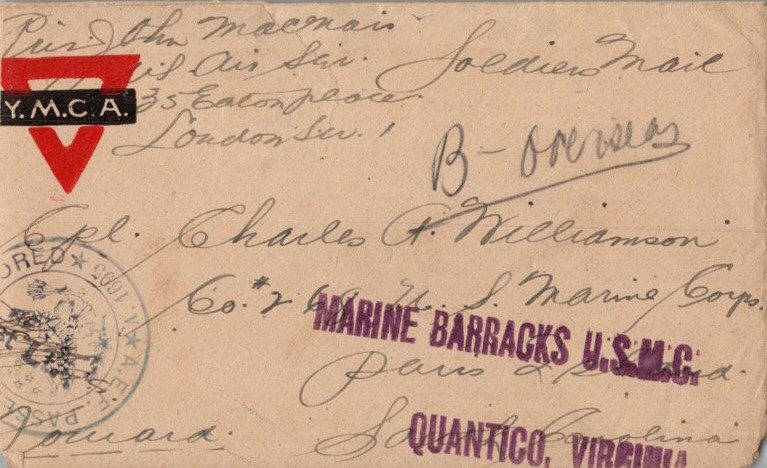 Priv. John Macnair
U.S. Air Ser.
35 Eaton place.
London S.W. 1
Soldiers Mail
Y.M.C.A.
B - Overseas
Cpl. Charles A. Williamson
Co. #268 U. S. Marine Corps.
MARINE BARRACKS U.S.M.C.
Paris Island.
QUANTICO, VIRGINIA
South Carolina
Forward.
ORED ★ A. 1695 ★ A.E.F. PASSE